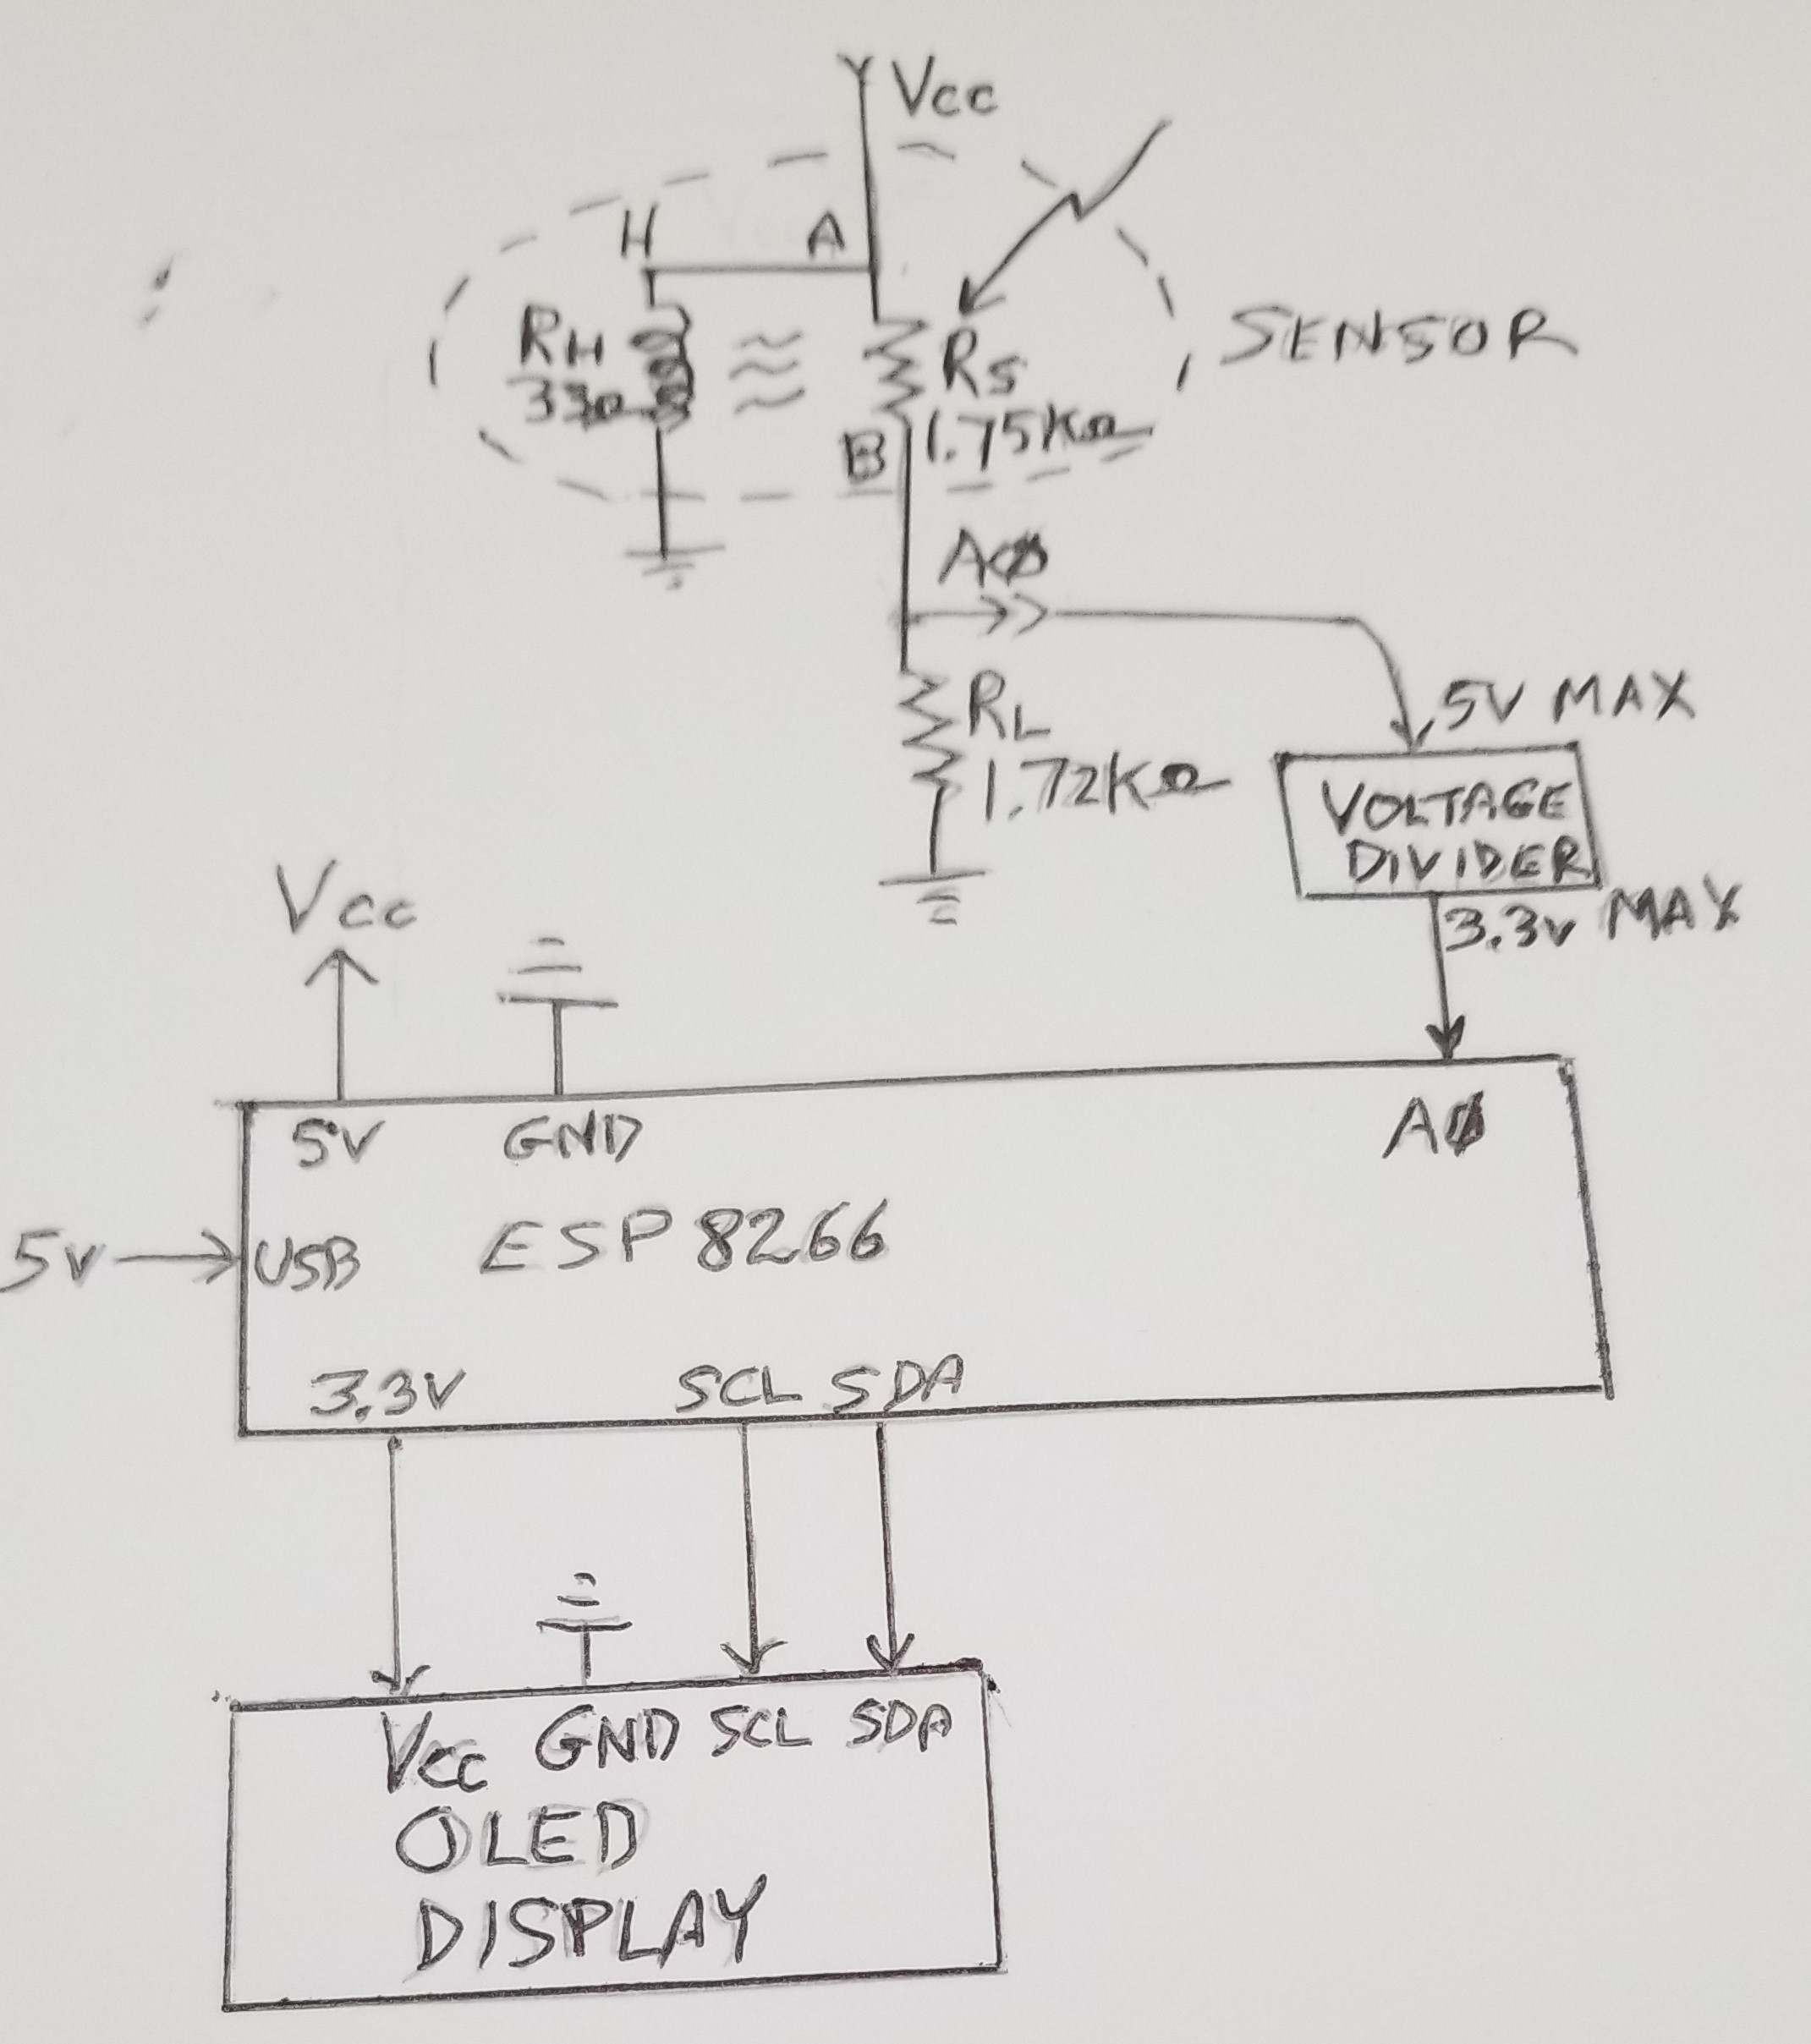 Vcc
H A
RH
33Ω
RS
1.75KΩ
B
SENSOR
AØ
RL
1.72KΩ
5V MAX
VOLTAGE
DIVIDER
3.3V MAX
Vcc
5V GND AØ
5V USB ESP 8266
3.3V SCL SDA
Vcc GND SCL SDA
OLED
DISPLAY